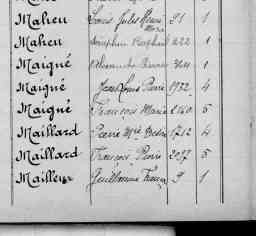 Maheu Louis Jules Henri Marie 21 1
Maheu Josephin Raphael 222 1
Maigné Alexandre 1
Maigné Jean Louis Pierre 1932 4
Maigné François Marie 2160 5
Maillard Pierre Mie 1712 4
Maillard François Pierre 2037 5
Mailleux Guillaume 9 1